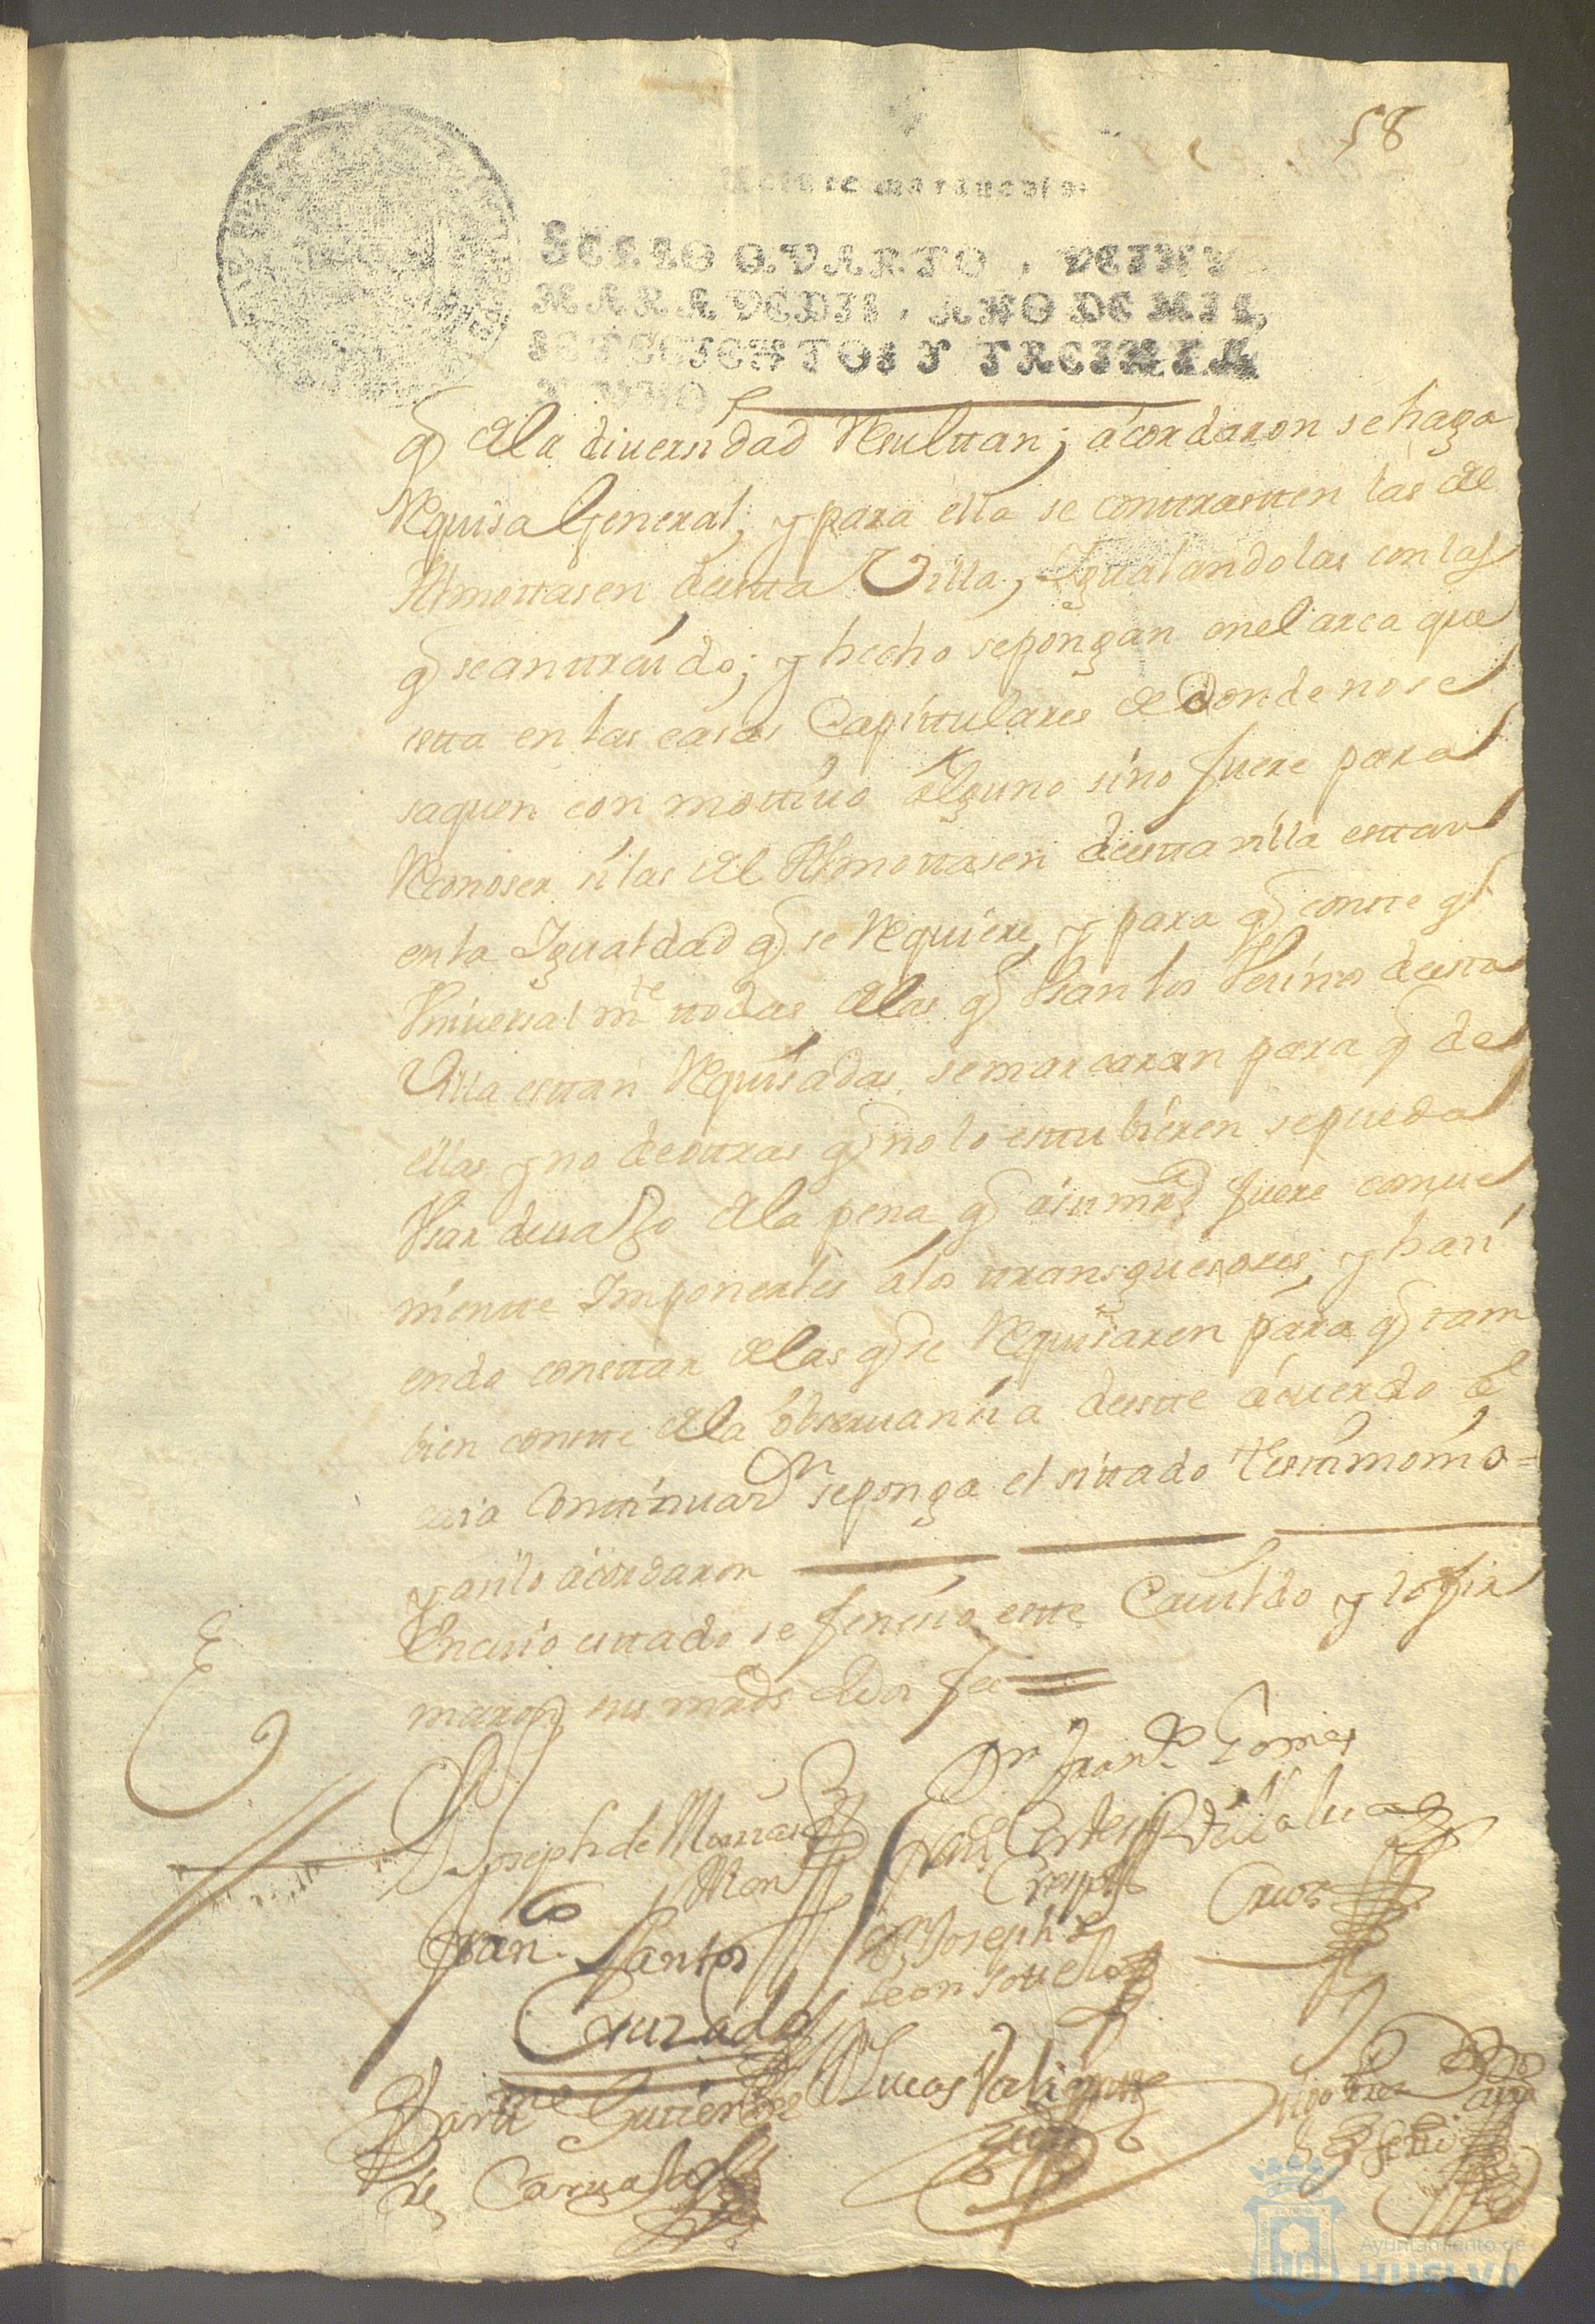 58
Veinte maravedis
SELLO QVARTO, VEINTE
MARAVEDIS, AÑO DE MIL
SETECIENTOS Y TREINTA
Y VNO
q de la diversidad Resulttan; acordaron se haga
Requisa General, y para ella se conttrastten las del
Almottasen desta Villa, Igualandolas con las
q se an ttraido; y hecho se pongan en el arca que
estta en las casas Capittulares de donde no se
saquen con mottivo alguno sino fuere para
Reconoser si las del Almottasen desta villa esttan
en la Igualdad q se Requiere, y para q consтe q
Vniversalmte ttodas de las q Vsan los Vesinos desta
Villa esttan Requisadas, se marcaran para q de
ellas y no de ottras q no lo esttubieren se pueda
Vsar devaxo de la pena q a sus mrds fuere conve
niente Imponerles a los ttransgresores; y hasi
endo consttar de las q se Requisaren para q tam
bien constte de la observansia destte acuerdo
Continuazn se ponga el sittado testimonio =
y asi lo acordaron
En cuio esttado se fenesio estte Cavildo y lo fir
maron sus mrds de q doi fee
Dn Franco Gomes
Joseph de
Franco Cortes
Villalva
Crespo
Cruz
Franco Santos
Cruzado
Joseph de
Leon Sotelo
Barme Gutierrez
de Carvajal
Lucas
Ayuntamiento de
HUELVA